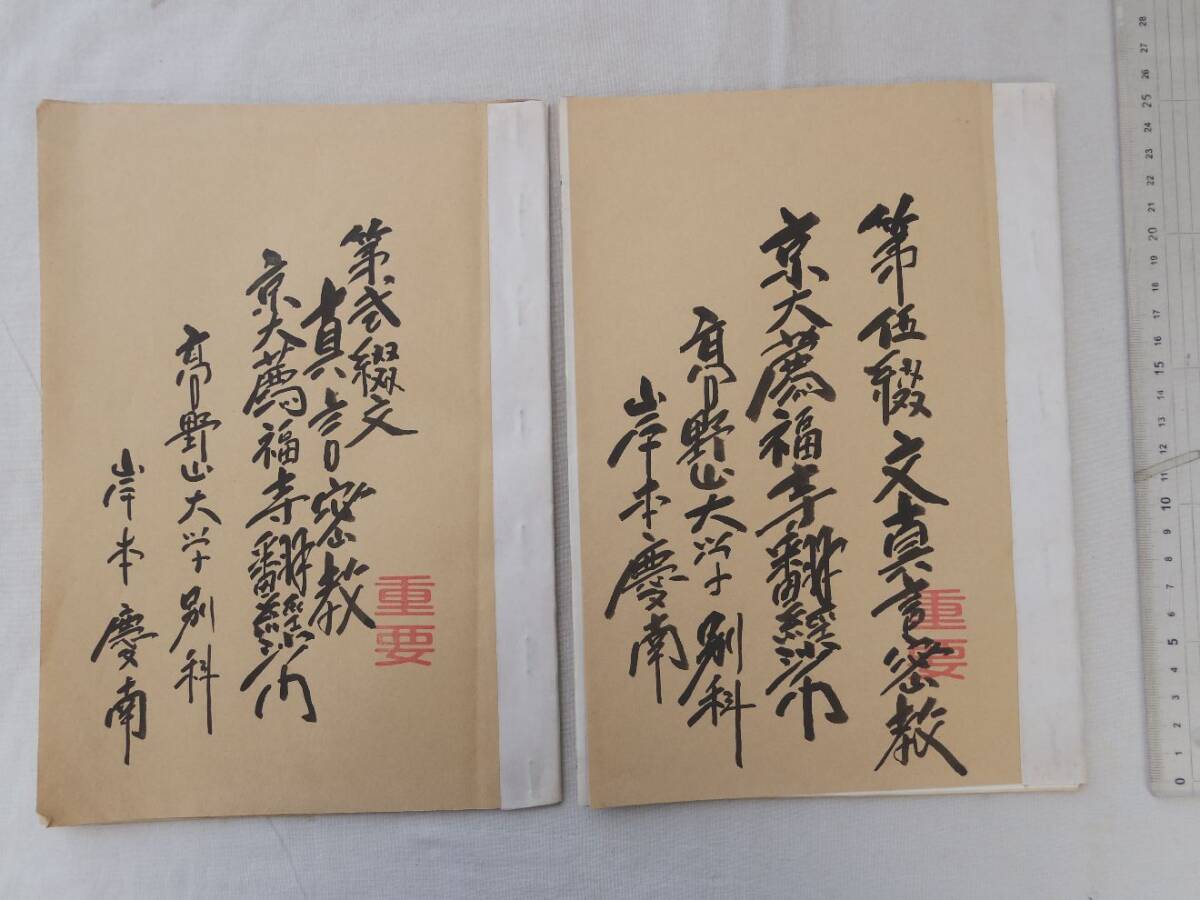 第弐綴文
真言密教
京大薦福寺翻経沙門
高野山大学別科
岸本慶南
重要
第伍綴文真言密教
京大薦福寺翻経沙門
高野山大学別科
岸本慶南
重要
0 1 2 3 4 5 6 7 8 9 10 11 12 13 14 15 16 17 18 19 20 21 22 23 24 25 26 27 28